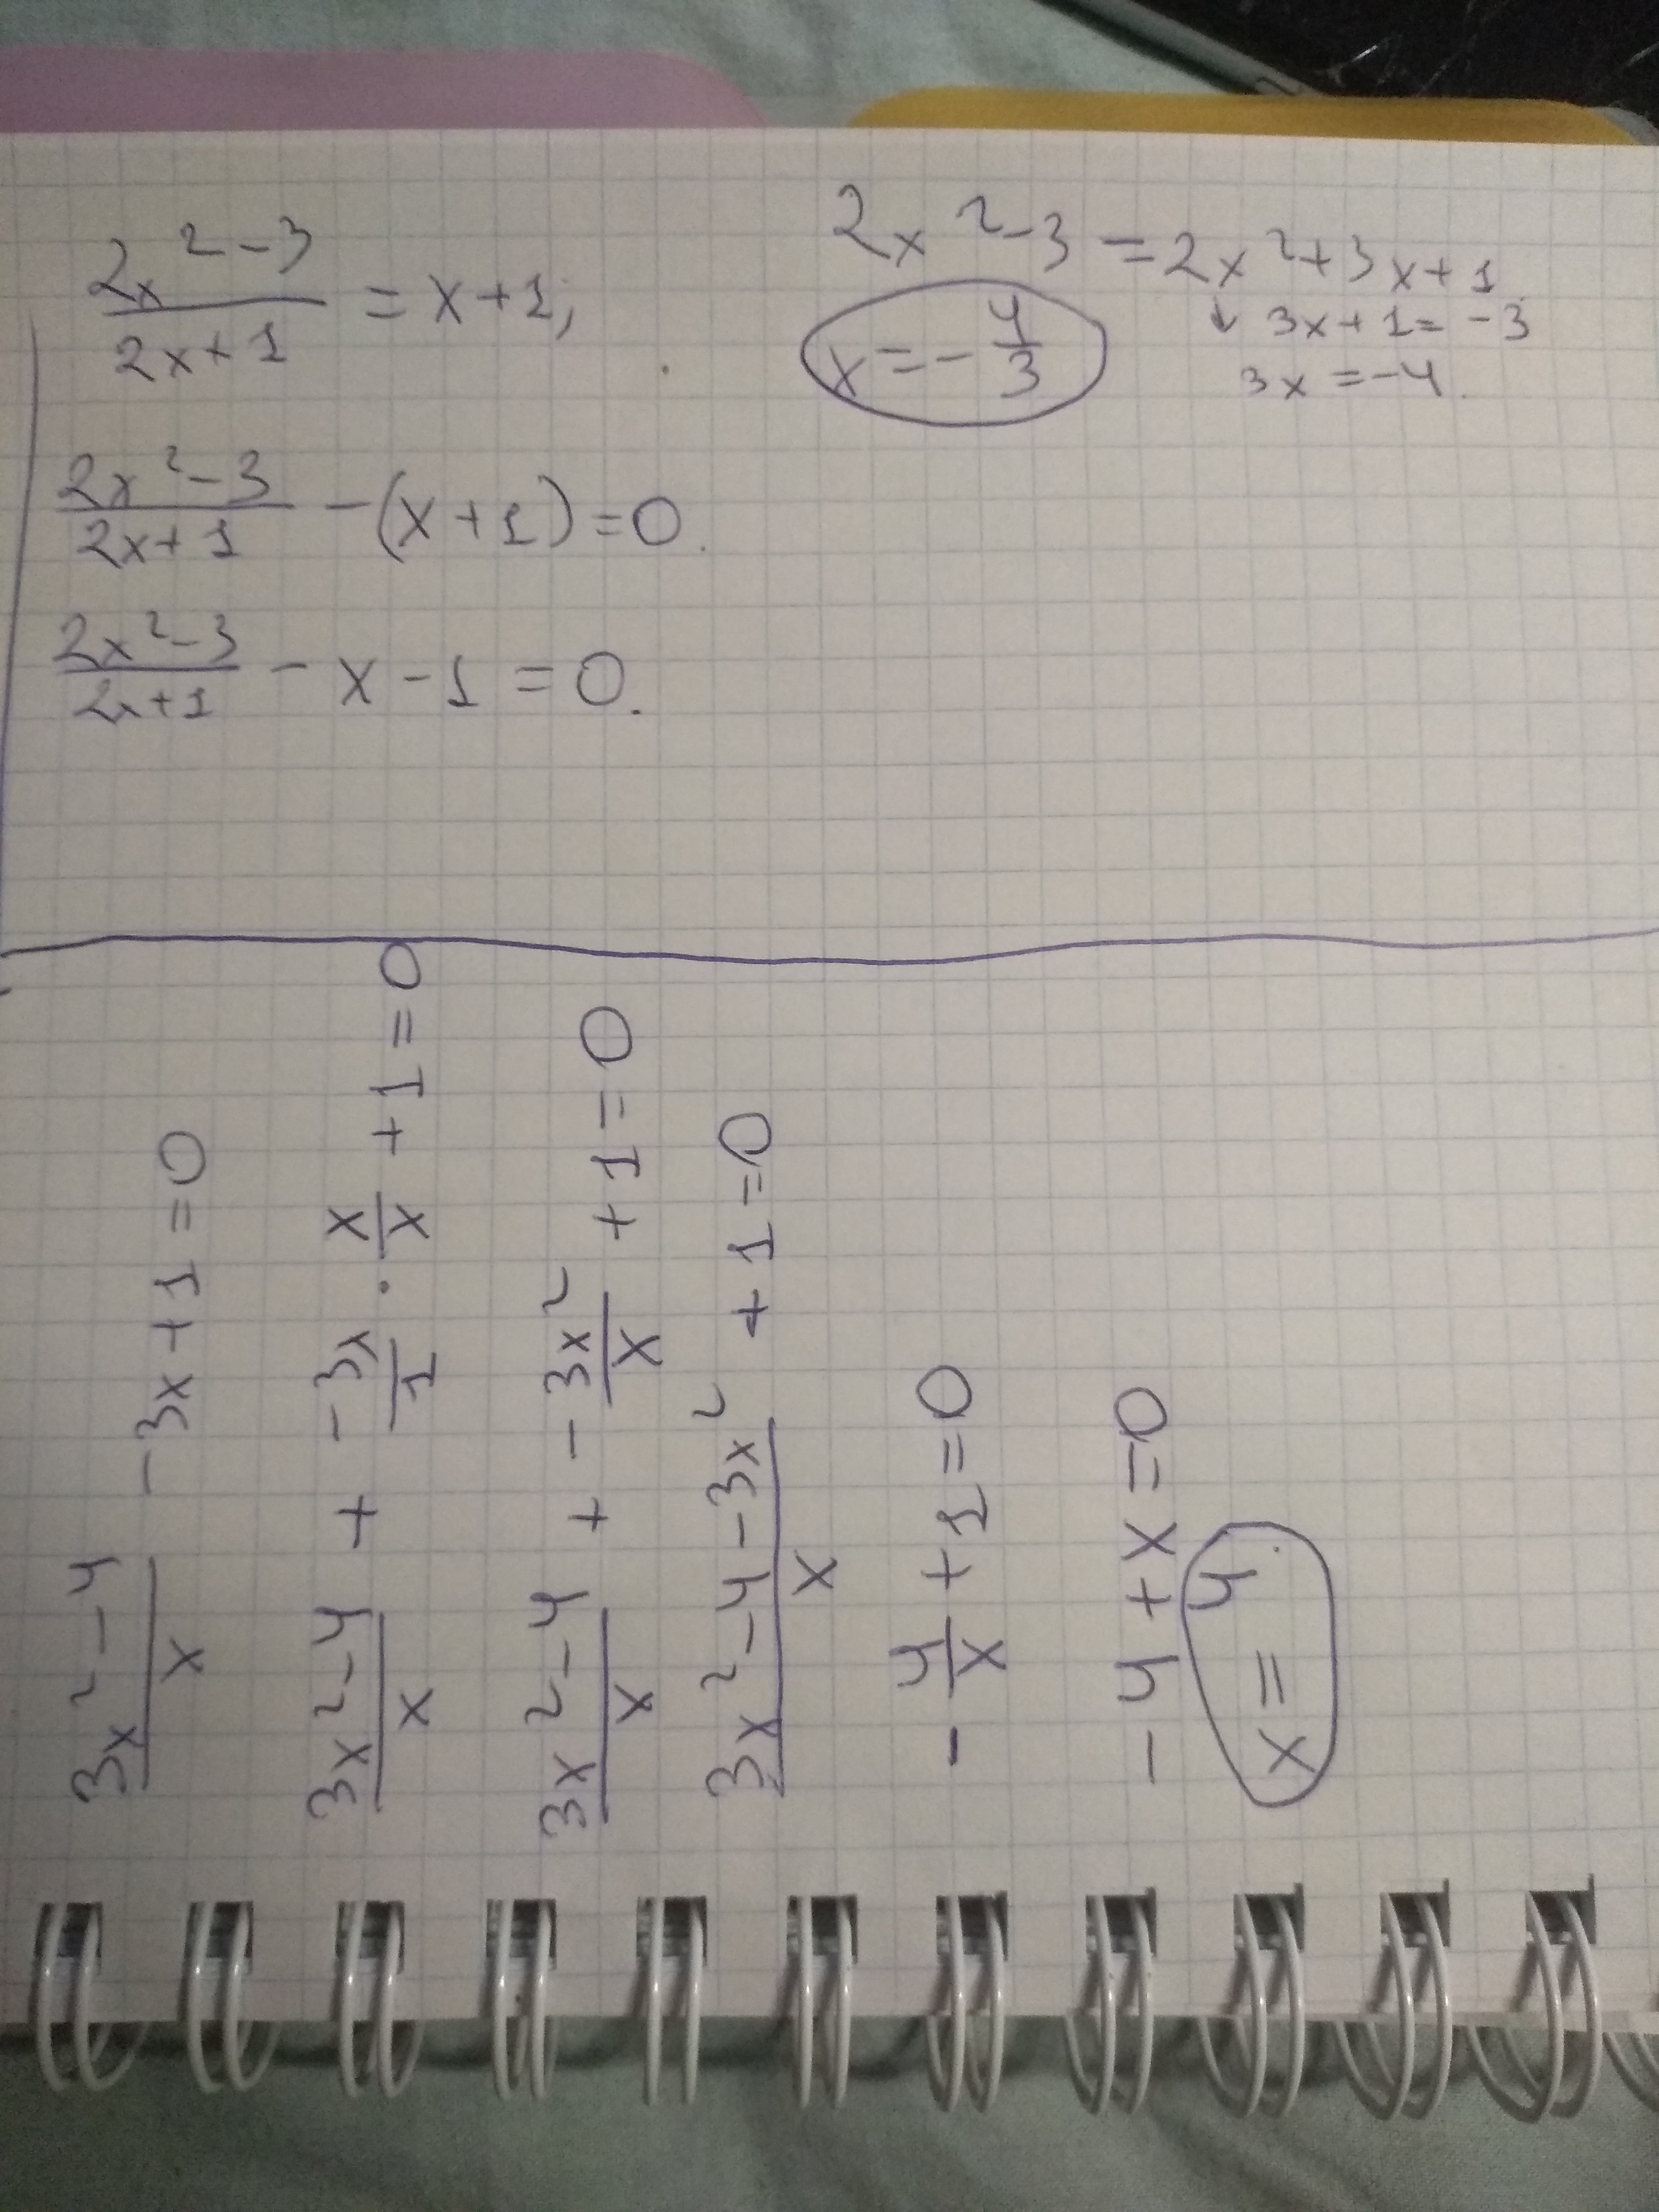 (2x² - 3)/(2x + 1) = x + 1;
(2x² - 3)/(2x + 1) - (x + 1) = 0.
(2x² - 3)/(2x + 1) - x - 1 = 0.
2x² - 3 = 2x² + 3x + 1
↓ 3x + 1 = -3
3x = -4.
x = - 4/3
(3x² - 4)/x - 3x + 1 = 0
(3x² - 4)/x + - 3x/1 · x/x + 1 = 0
(3x² - 4)/x + - 3x²/x + 1 = 0
(3x² - 4 - 3x²)/x + 1 = 0
- 4/x + 1 = 0
- 4 + x = 0
x = 4